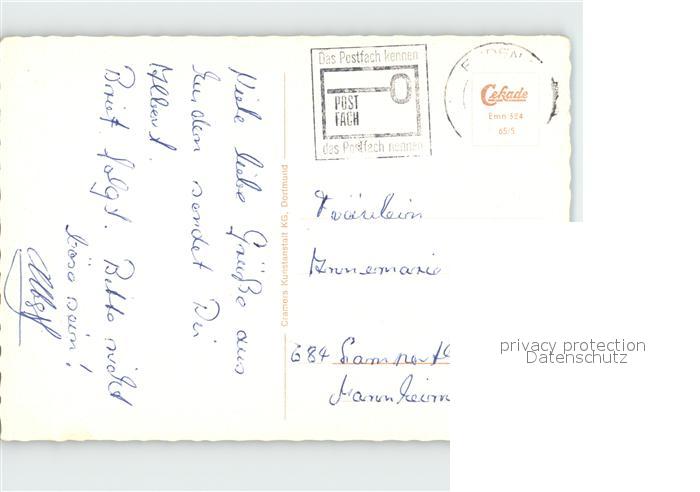 Viele liebe Grüße aus
Emden sendet Dir
Albert.
Brief folgt. Bitte nicht
böse sein!
Albert
Cramers Kunstanstalt KG, Dortmund
Das Postfach kennen
POST
FACH
das Postfach nennen
EMDEN
Cekade
Emn 524
65/5
Fräulein
Annemarie
684 Lamperth
Mannheim
privacy protection
Datenschutz